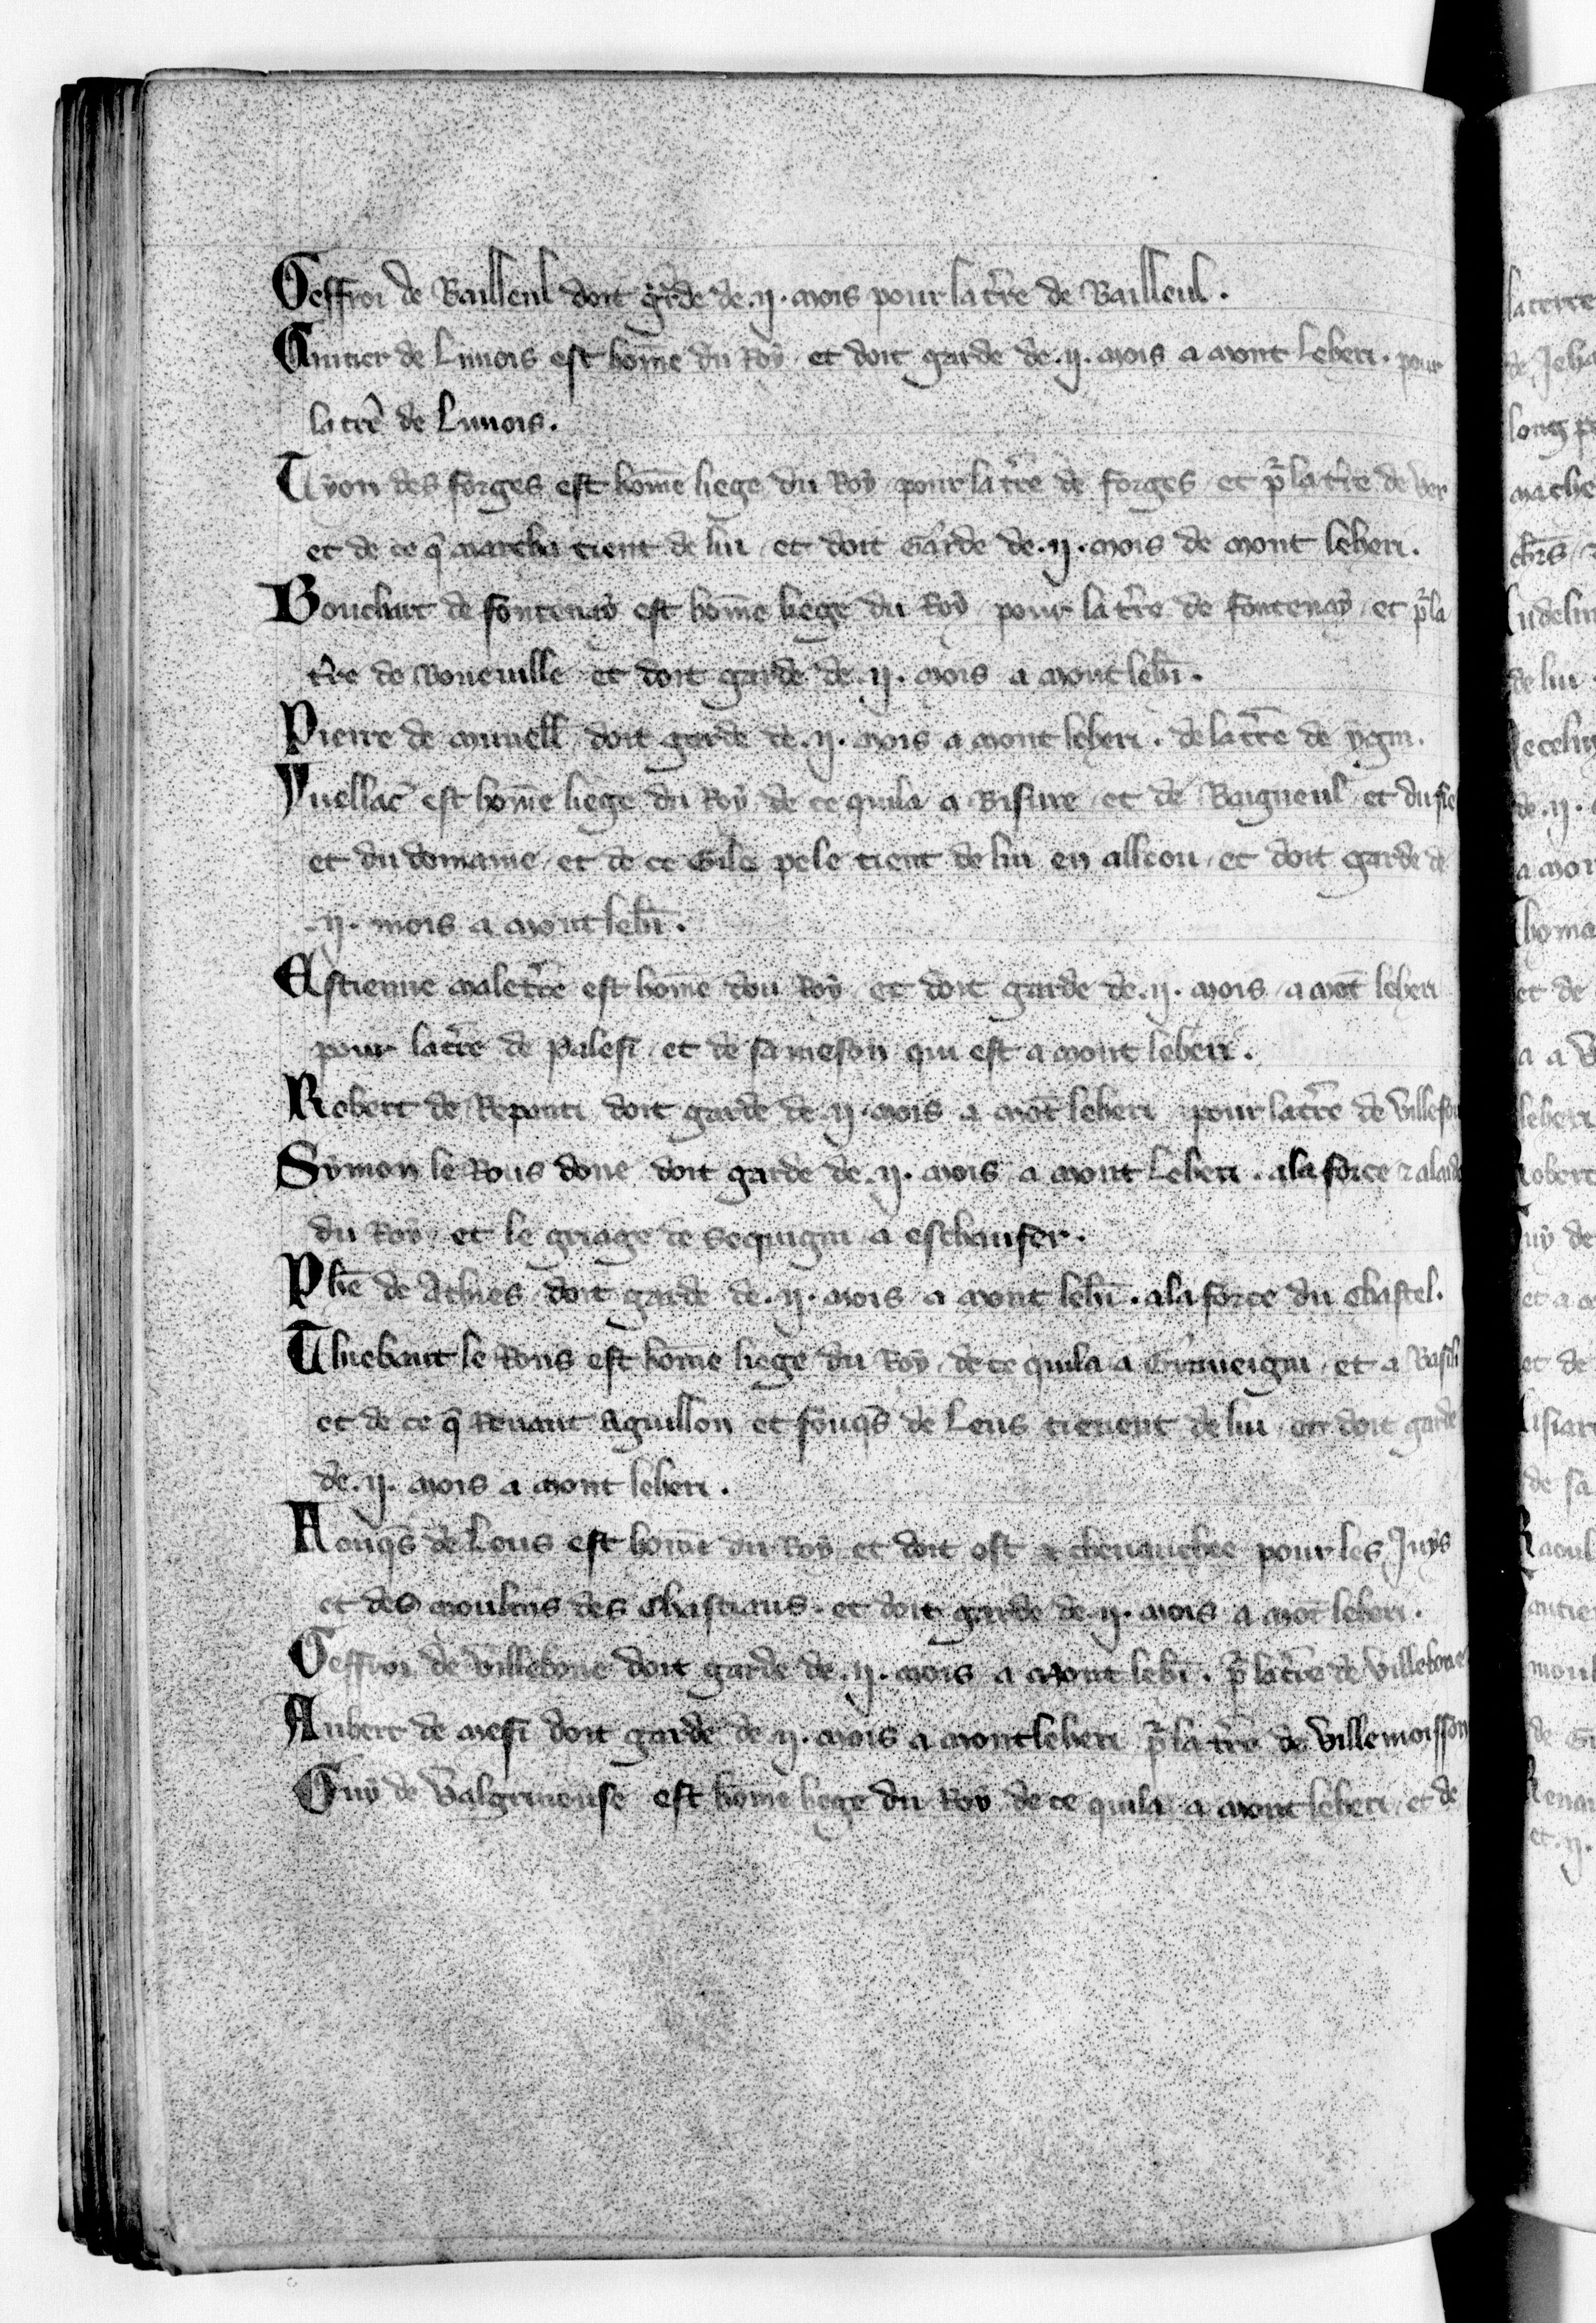 Geffroi de Bailleul doit g̃rde de .ij. mois pour la t̃re de Bailleul.
Gautier de Linois est hom̃e du Roy et doit garde de .ij. mois a mont leheri. pour
la tr̃e de Linois.
Tyon des forges est hom̃e liege du Roy pour la tr̃re de forges et pͬ la tr̃re de ver
et de ce q̃ marcha tient de lui et doit Garde de .ij. mois de mont leheri.
Bouchart de fontenay est hom̃e liege du Roy pour la t̃re de fontenay et pͬ la
t̃re de Boneville et doit garde de .ij. mois a mont leh̃i.
Pierre de Munell doit garde de .ij. mois a mont leheri. de la tr̃re de ygni.
Yuellac̃ est hom̃e liege du Roy de ce quil a a Bisure et de Baigneul et du fie
et du domaine et de ce Gile pele tient de lui en alleou et doit garde de
.ij. mois a mont leh̃i.
Estienne male tr̃re est hom̃e dou Roy et doit garde de .ij. mois a mõt leheri
pour la tr̃re de Palesi et de sa meson qui est a mont leheri.
Robert de Reponti doit garde de .ij. mois a mõt leheri pour la tr̃re de villefou
Symon le Rous done doit garde de .ij. mois a mont leheri. a la force ⁊ a laide
du Roy et le griage de Sequigni a eschaufer.
Phẽ de Athies doit garde de .ij. mois a mont leh̃i. a la force du Chastel.
Thiebaut le Rous est hom̃e liege du Roy de ce quil a a Graveigni et a Basili
et de ce q̃ Renaut Aguillon et fouq̃s de Leus tienent de lui et doit garde
de .ij. mois a mont leheri.
Aouq̃s de Leus est hom̃e du Roy et doit ost ⁊ chevauchee pour les Juys
et des moulins des Chastiaus. et doit garde de .ij. mois a mõt leheri.
Geffroi de villebone doit garde de .ij. mois a mont leh̃i. pͬ la tr̃re de villebone
Aubert de mesi doit garde de .ij. mois a mont leheri pͬ la tr̃re de villemoisson
Guy de Valgrineuse est hom̃e liege du Roy de ce quil a a mont leheri et de